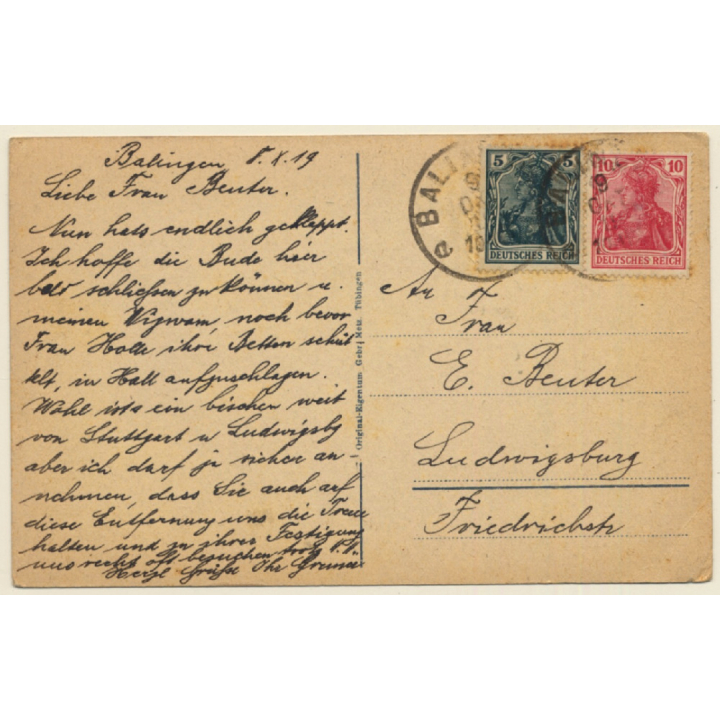 Balingen 8.X.19
Liebe Frau Beuter.
Nun hats endlich geklappt.
Ich hoffe die Bude hier
bald schließen zu können u.
meinen Wigwam, noch bevor
Frau Holle ihre Betten schüt
telt, in Hall aufzuschlagen.
Wohl ists ein bischen weit
von Stuttgart u Ludwigsbg
aber ich darf ja sicher an-
nehmen, dass Sie auch auf
diese Entfernung uns die Treue
halten und zu ihrer Festigung
uns recht oft besuchen trotz
Herzl Grüße Ihr
Original-Eigentum Gebr. Metz, Tübingen
BALINGEN
5 5
DEUTSCHES REICH
10 10
DEUTSCHES REICH
An
Frau
E. Beuter
Ludwigsburg
Friedrichstr